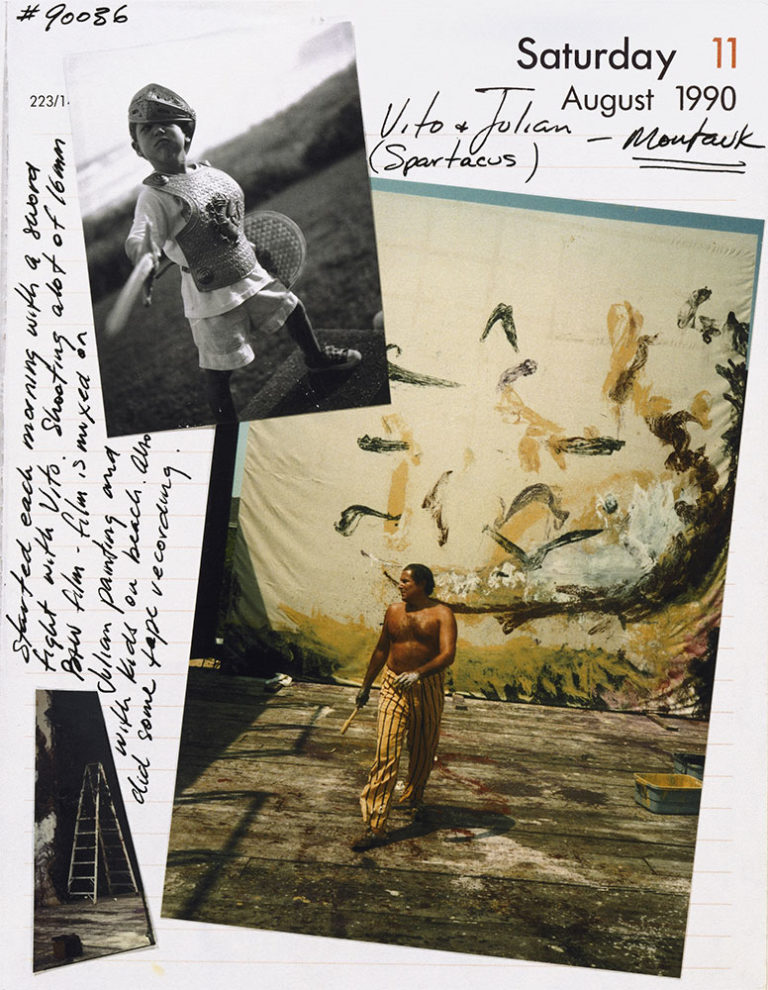 #90036
Saturday 11
August 1990
223/14
Vito + Julian — Montauk
(Spartacus)
Started each morning with a sword
fight with Vito. Shooting alot of 16mm
B+W film - film is mixed on
Julian painting and
with kids on beach. Also
did some tape recording.